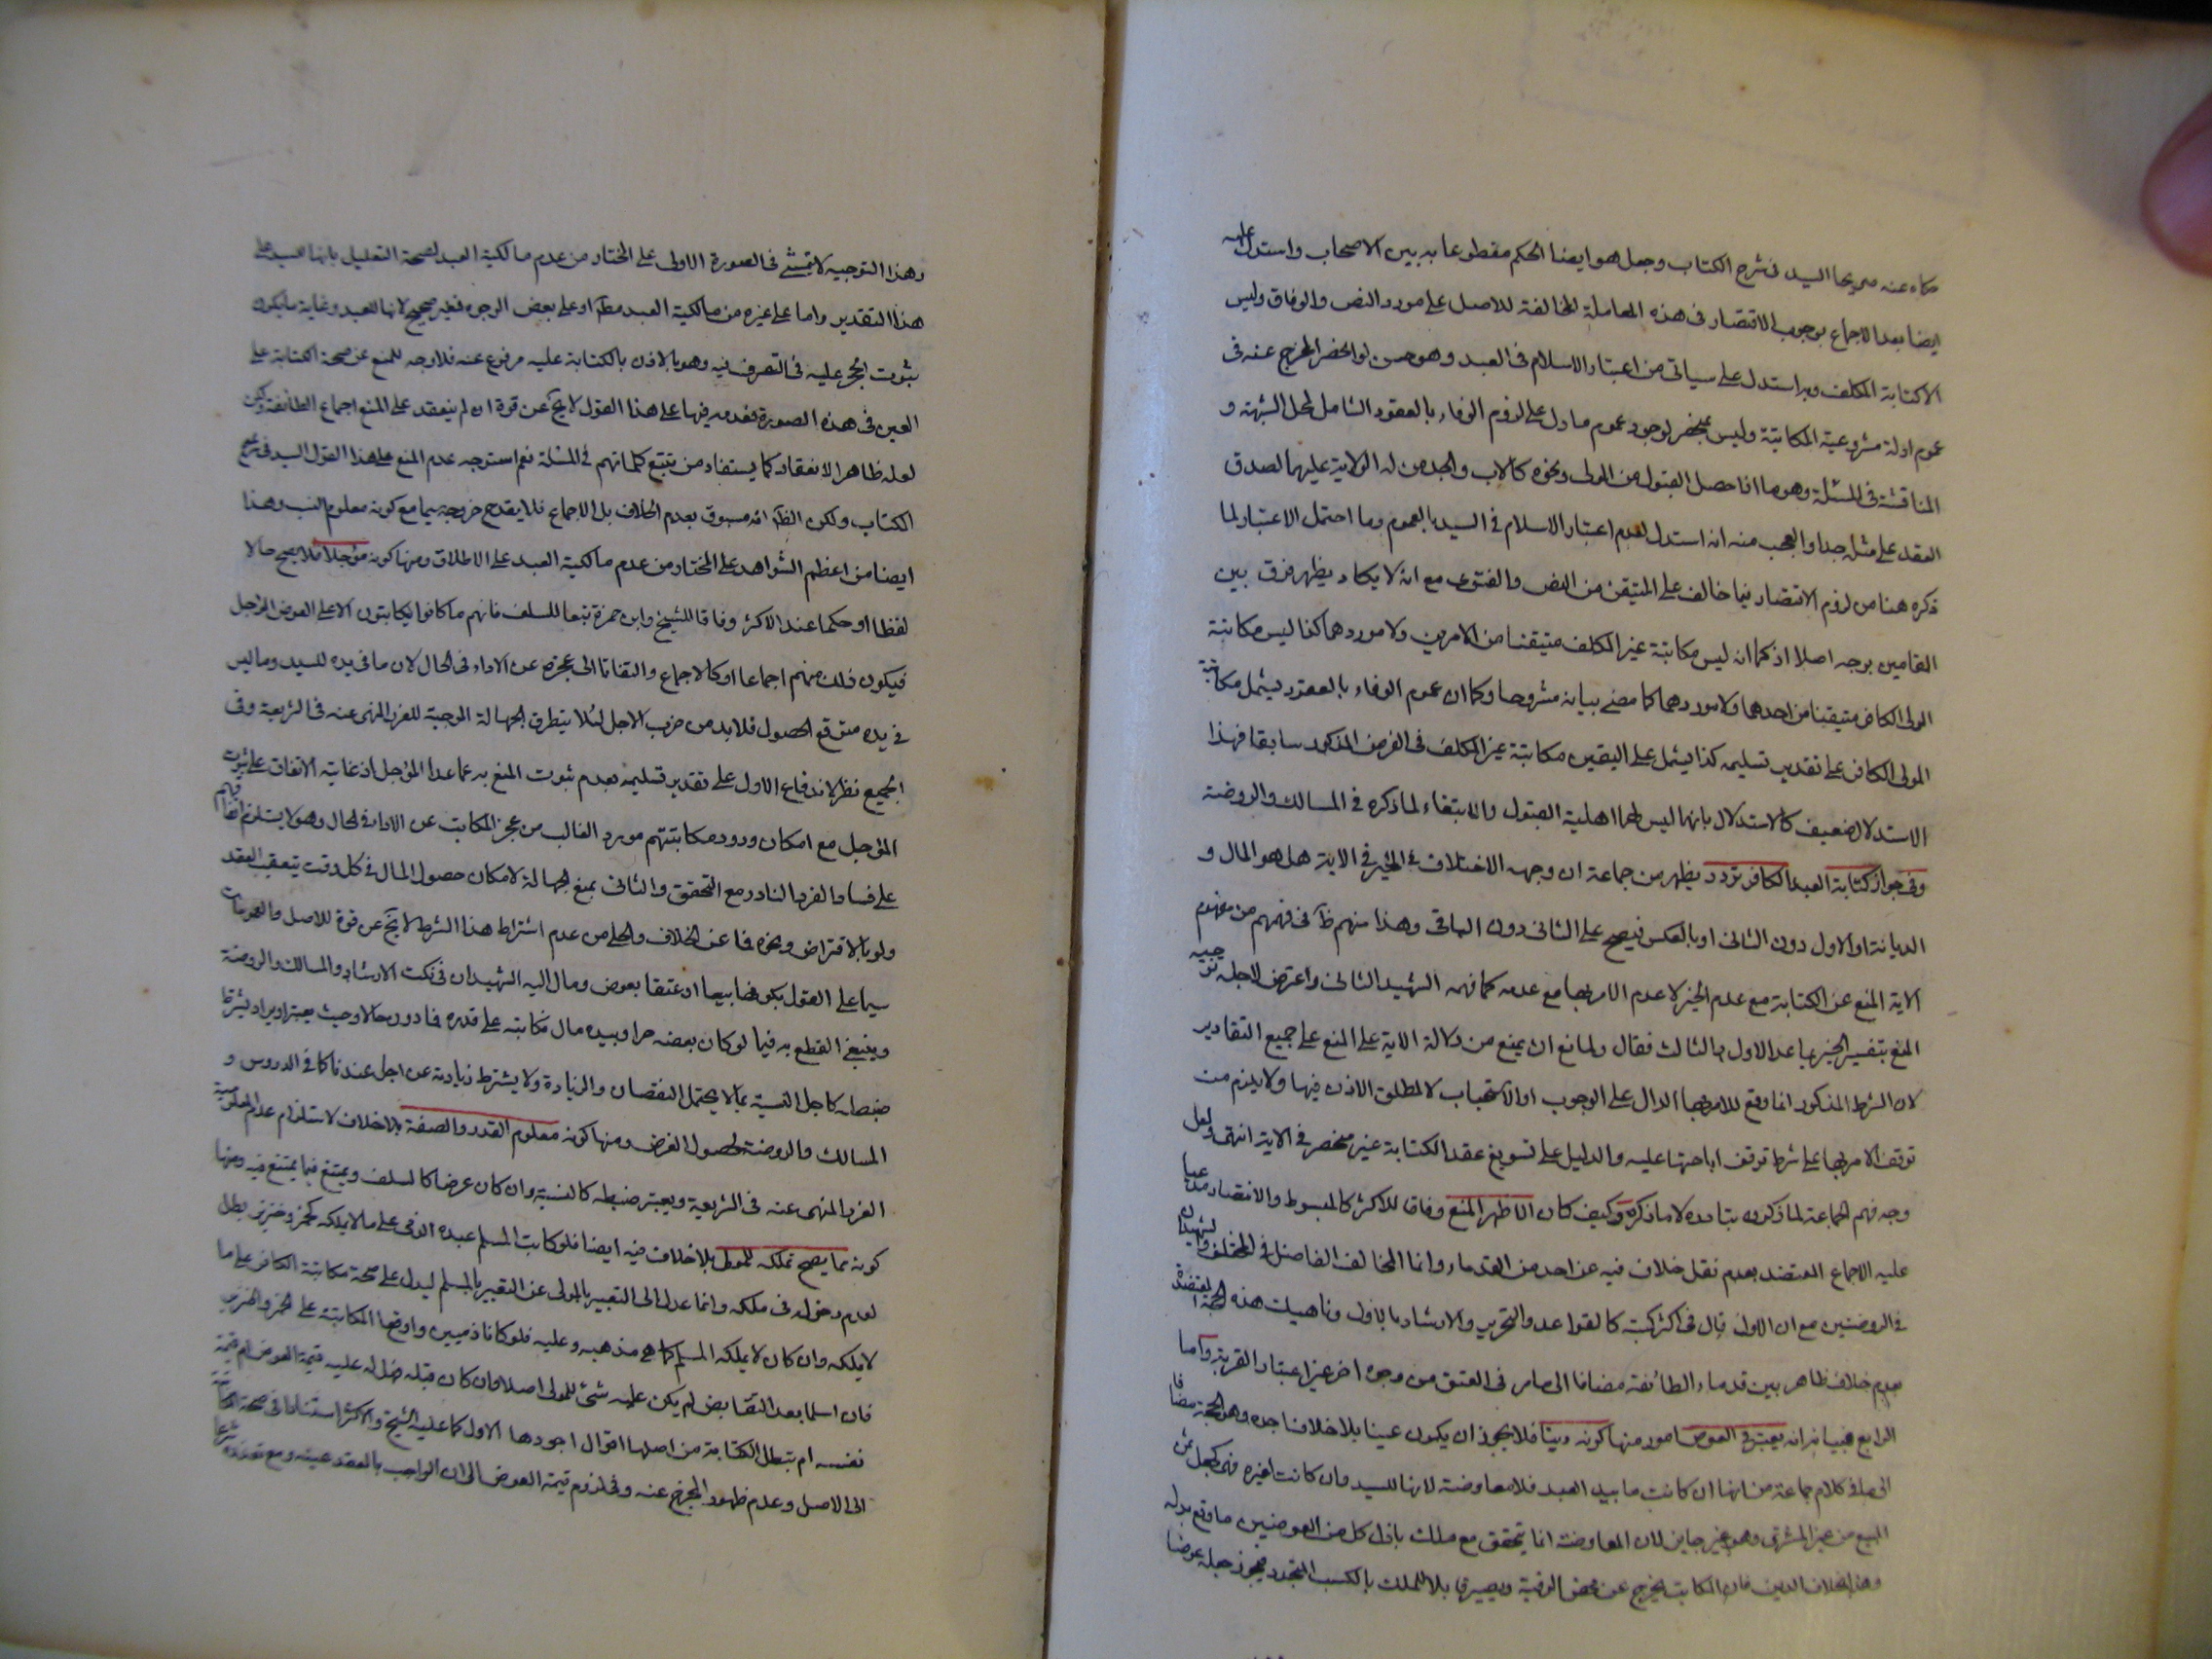 حكاه عنه صريحا السيد في شرح الكتاب وجعل هو ايضا الحكم مقطوعا به بين الاصحاب واستدل عليه
ايضا بعد الاجماع بوجوب الاقتصار في هذه المعاملة المخالفة للاصل على مورد النص والوفاق وليس
الا كتابة المكلف وبه استدل على سياتي من اعتبار الاسلام في العبد وهو حسن لو انحصر المخرج عنه في
عموم ادلة مشروعية المكاتبة وليس بمنحصر لوجود عموم ما دل على لزوم الوفاء بالعقود الشامل لمحل الشبهة و
المناقشة في المسئلة وهو ما اذا حصل القبول من المولى ونحوه كالاب والجد ممن له الولاية عليهما لصدق
العقد على مثله جدا والعجب منه انه استدل لعدم اعتبار الاسلام في السيد بالعموم وما احتمل الاعتبار لما
ذكره هنا من لزوم الاقتصار فيما خالف على المتيقن من النص والفتوى مع انه لا يكاد يظهر فرق بين
المقامين بوجه اصلا اذ كما انه ليس مكاتبة غير المكلف متيقنا من الامرين ولا موردهما كذا ليس مكاتبة
المولى الكافر متيقنا من احدهما ولا موردهما كما مضى بيانه مشروحا وكما ان عموم الوفاء بالعقود يشمل مكاتبة
المولى الكافر على تقدير تسليمه كذا يشمل على اليقين مكاتبة غير المكلف في الفرض المذكور سابقا فهذا
الاستدلال ضعيف كالاستدلال بانهما ليس لهما اهلية القبول والابتغاء لما ذكره في المسالك والروضة
وفي جواز كتابة العبد الكافر تردد يظهر من جماعة ان وجهه الاختلاف في الخير في الاية هل هو المال و
الديانة او الاول دون الثاني او بالعكس فيصح على الثاني دون الباقي وهذا منهم ظ في فهمهم من مفهوم
الاية المنع عن الكتابة مع عدم الخير لا عدم الامر بها مع عدمه كما فهمه الشهيد الثاني واعترض لاجله توجيه
المنع بتفسير الخير بما عدا الاول والثالث فقال ولمانع ان يمنع من دلالة الاية على المنع على جميع التقادير
لان الشرط المذكور انما وقع للامر بها الدال على الوجوب او الاستحباب لا لمطلق الاذن فيها ولا يلزم من
توقف الامر بها على شرط توقف اباحتها عليه والدليل على تسويغ عقد الكتابة غير منحصر في الاية انتهى ولعل
وجه فهم الجماعة لما ذكروه تبادره لا ما ذكره وكيف كان الاظهر المنع وفاقا للاكثر كالمبسوط والانتصار مدعيا
عليه الاجماع المعتضد بعدم نقل خلاف فيه عن احد من القدماء وانما المخالف الفاضل في المختلف والشهيدان
في الروضتين مع ان الاول قال في اكثر كتبه كالقواعد والتحرير والارشاد بالاول وناهيك هذه الحجة المعتضدة
بعدم خلاف ظاهر بين قدماء الطائفة مضافا الى ما مر في العتق من وجوه اخر غير اعتبار القربة واما
الرابع فبيانه انه يعتبر في العوض امور منها كونه دينا فلا يجوز ان يكون عينا بلا خلاف اجده وهو الحجة مضافا
الى ما في كلام جماعة من انها ان كانت ما بيد العبد فلا معاوضة لانها للسيد وان كانت لغيره فهي كجعل ثمن
المبيع من غير المشتري وهو غير جايز لان المعاوضة انما يتحقق مع ملك باذل كل من العوضين ما وقع بدله
وهذا بخلاف الدين فان المكاتب يخرج عن محض الرقية ويصير قابلا للملك بالكسب المتجدد فيجوز جعله عوضا
وهذا التوجيه لا يتمشى في الصورة الاولى على المختار من عدم مالكية العبد لصحة التعليل بانها للسيد على
هذا التقدير واما على غيره من مالكية العبد مطلقا او على بعض الوجوه فغير صحيح لانها للعبد وغاية ما يكون
ثبوت الحجر عليه في التصرف فيه وهو بالاذن بالكتابة عليه مرفوع عنه فلا وجه للمنع عن صحة الكتابة على
العين في هذه الصورة فعدمه فيها على هذا القول لا يخ عن قوة ان لم ينعقد على المنع اجماع الطائفة ولكن
لعله ظاهر الانعقاد كما يستفاد من تتبع كلماتهم في المسئلة نعم استوجه عدم المنع على هذا القول السيد في شرح
الكتاب ولكن الظ انه مسبوق بعدم الخلاف بل الاجماع فلا يقدح خروجه سيما مع كونه معلوم النسب وهذا
ايضا من اعظم الشواهد على المختار من عدم مالكية العبد على الاطلاق ومنها كونه مؤجلا فلا يصح حالا
لفظا او حكما عند الاكثر وفاقا للشيخ وابن حمزة تبعا للسلف فانهم ما كانوا يكاتبون الا على العوض المؤجل
فيكون ذلك منهم اجماعا او كالاجماع والتفاتا الى عجزه عن الاداء في الحال لان ما في يده للسيد وما ليس
في يده متوقع الحصول فلابد من ضرب الاجل لئلا يتطرق الجهالة الموجبة للغرر المنهي عنه في الشريعة وفي
الجميع نظر لاندفاع الاول على تقدير تسليمه بعدم ثبوت المنع به عما عدا المؤجل اذ غايته الاتفاق على ثبوت
المؤجل مع امكان ورود مكاتبتهم مورد الغالب من عجز المكاتب عن الاداء في الحال وهو لا يستلزم اتفاقهم
على فساد الفرد النادر مع التحقق والثاني بمنع الجهالة لامكان حصول المال في كل وقت يتعقب العقد
ولو بالاقتراض ونحوه فما عن الخلاف والحلي من عدم اشتراط هذا الشرط لا يخ عن قوة للاصل والعمومات
سيما على القول بكونها بيعا او عتقا بعوض ومال اليه الشهيدان في نكت الارشاد والمسالك والروضة
وينبغي القطع به فيما لو كان بعضه حرا وبيده مال فكاتبه على قدره فما دون حالا وحيث يعتبر او يراد يشترط
ضبطه كاجل النسية بما لا يحتمل النقصان والزيادة ولا يشترط زيادته عن اجل عندنا كما في الدروس و
المسالك والروضة لحصول الغرض ومنها كونه معلوم القدر والصفة بلا خلاف لاستلزام عدم المعلومية
الغرر المنهي عنه في الشريعة ويعتبر ضبطه كالنسية وان كان عرضا كالسلف ويمتنع فيما يمتنع فيه ومنها
كونه مما يصح تملكه للمولى بلا خلاف فيه ايضا فلو كاتب المسلم عبده الذمي على ما لا يملكه كخمر وخنزير بطل
لعدم دخوله في ملكه وانما عدل الى التعبير بالمولى عن التعبير بالمسلم ليدل على صحة مكاتبة الكافر على ما
لا يملكه وان كان لا يملكه المسلم كما هي مذهبه وعليه فلو كانا ذميين واوقعا المكاتبة على الخمر والخنزير
فان اسلما بعد التقابض لم يكن عليه شئ للمولى اصلا وان كان قبله فهل له عليه قيمة العوض ام قيمة
نفسه ام تبطل الكتابة من اصلها اقوال اجودها الاول كما عليه الشيخ والاكثر استنادا في صحة المكاتبة
الى الاصل وعدم ظهور المخرج عنه وفي لزوم قيمة العوض الى ان الواجب بالعقد عينه ومع تعذره شرعا